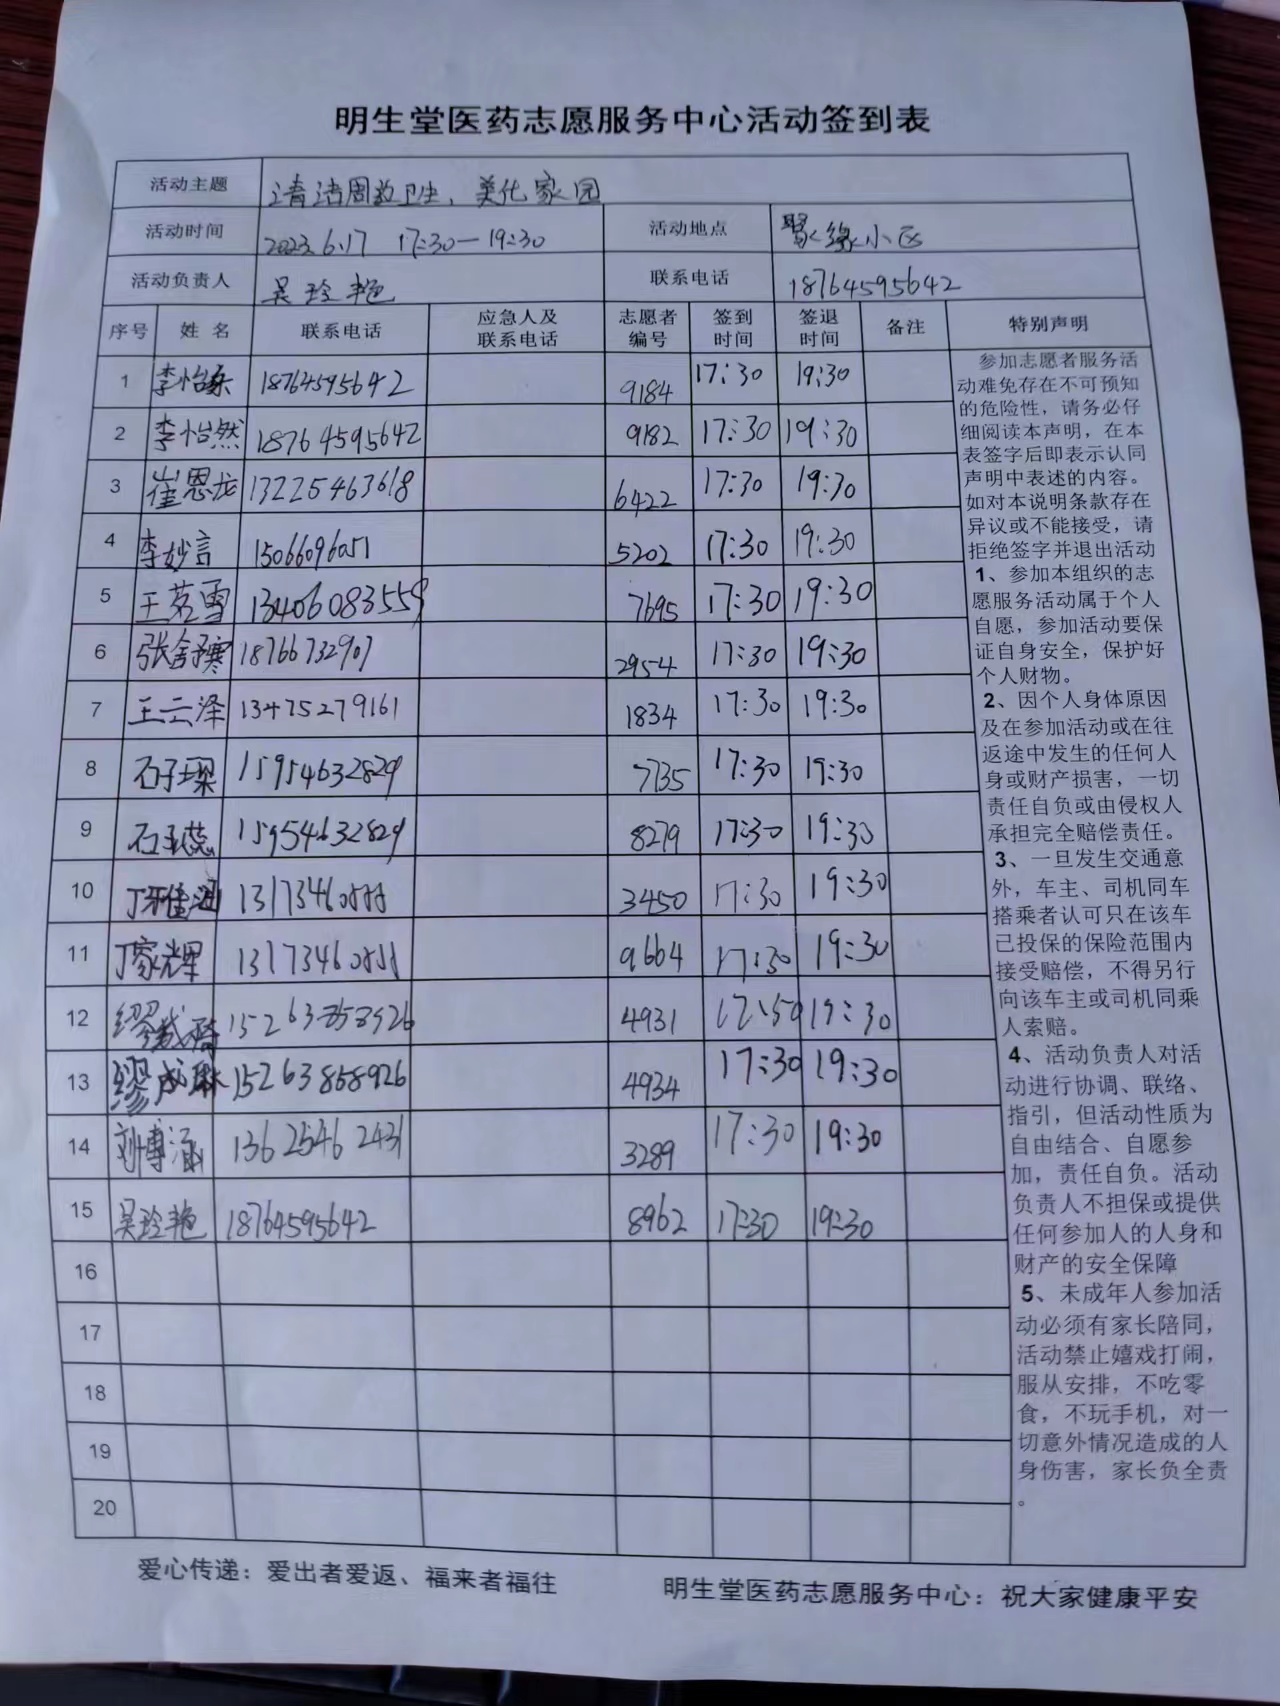 明生堂医药志愿服务中心活动签到表
活动主题 清洁周边卫生、美化家园
活动时间 2023.6.17 17:30—19:30 活动地点 聚缘小区
活动负责人 吴玲艳 联系电话 18764595642
序号 姓名 联系电话 应急人及联系电话 志愿者编号 签到时间 签退时间 备注 特别声明
1 李怡 18764595642 9184 17:30 19:30
2 李怡然 18764595642 9182 17:30 19:30
3 崔恩龙 13225463618 6422 17:30 19:30
4 李妙言 5202 17:30 19:30
5 王茗雪 13406083559 7695 17:30 19:30
6 张舒寒 18766732907 2954 17:30 19:30
7 王云泽 13475279161 1834 17:30 19:30
8 石子琛 15954632829 7735 17:30 19:30
9 石 蕊 15954632829 8279 17:30 19:30
10 丁 佳涵 3450 17:30 19:30
11 丁家辉 9664 17:30 19:30
12 缪成 4931 19:30
13 缪成琳 15263858926 4934 17:30 19:30
14 刘博涵 13625462431 3289 17:30 19:30
15 吴玲艳 18764595642 8962 17:30 19:30
16
17
18
19
20
参加志愿者服务活
动难免存在不可预知
的危险性，请务必仔
细阅读本声明，在本
表签字后即表示认同
声明中表述的内容。
如对本说明条款存在
异议或不能接受，请
拒绝签字并退出活动
1、参加本组织的志
愿服务活动属于个人
自愿，参加活动要保
证自身安全，保护好
个人财物。
2、因个人身体原因
及在参加活动或在往
返途中发生的任何人
身或财产损害，一切
责任自负或由侵权人
承担完全赔偿责任。
3、一旦发生交通意
外，车主、司机同车
搭乘者认可只在该车
已投保的保险范围内
接受赔偿，不得另行
向该车主或司机同乘
人索赔。
4、活动负责人对活
动进行协调、联络、
指引，但活动性质为
自由结合、自愿参
加，责任自负。活动
负责人不担保或提供
任何参加人的人身和
财产的安全保障
5、未成年人参加活
动必须有家长陪同，
活动禁止嬉戏打闹，
服从安排，不吃零
食，不玩手机，对一
切意外情况造成的人
身伤害，家长负全责
。
爱心传递：爱出者爱返、福来者福往 明生堂医药志愿服务中心：祝大家健康平安